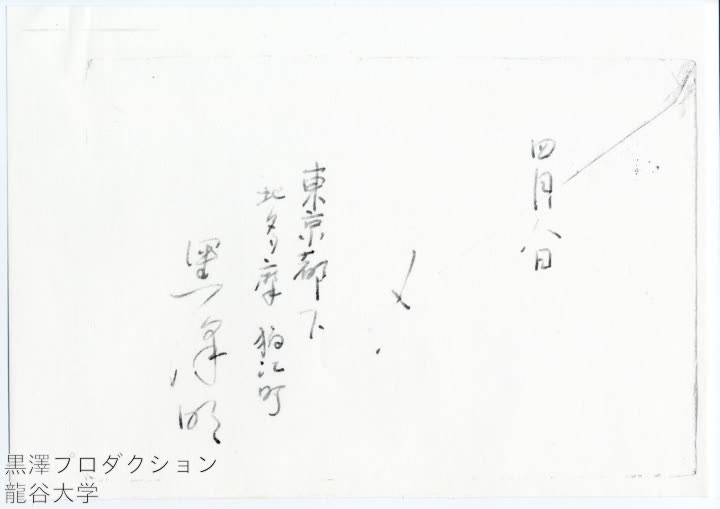 四月八日
〆
東京都下
北多摩狛江町
黒澤明
黒澤プロダクション
龍谷大学